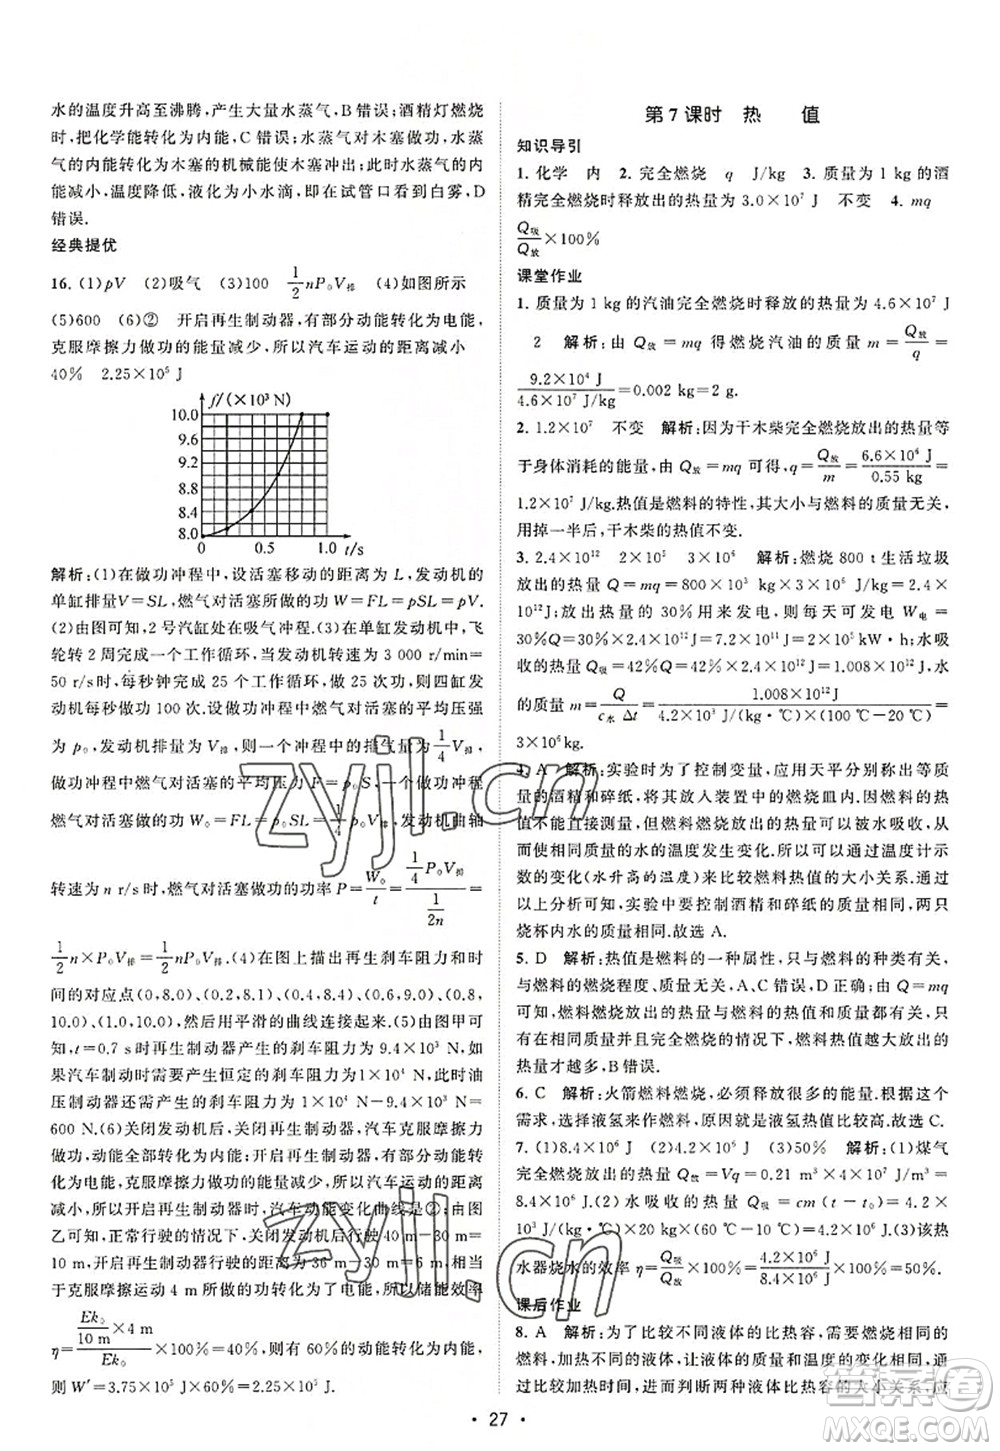 水的温度升高至沸腾,产生大量水蒸气,B 错误;酒精灯燃烧
时,把化学能转化为内能,C 错误;水蒸气对木塞做功,水蒸
气的内能转化为木塞的机械能使木塞冲出;此时水蒸气的内
能减小,温度降低,液化为小水滴,即在试管口看到白雾,D
错误.
经典提优
16. (1)pV (2)吸气 (3)100 1/2 nP₀V排 (4)如图所示
(5)600 (6)② 开启再生制动器,有部分动能转化为电能,
克服摩擦力做功的能量减少,所以汽车行驶的距离减小
40% 2.25×10⁵ J
f/(×10³ N)
10.0
9.6
9.2
8.8
8.4
8.0
0 0.5 1.0 t/s
解析:(1)在做功冲程中,设活塞移动的距离为 L,发动机的
单缸排量V=SL,燃气对活塞所做的功 W=FL=pSL=pV.
(2)由图可知,2 号汽缸处在吸气冲程.(3)在单缸发动机中,飞
轮转 2 周完成一个工作循环,当发动机转速为 3 000 r/min=
50 r/s 时,每秒钟完成 25 个工作循环,对外做功 25 次,四缸发
动机每秒做功 100 次.发动机做功冲程中燃气的平均压强
为 p₀,发动机排量为 V排,则一个冲程中的排气量为 1/4 V排,
做功冲程中燃气对活塞的平均压力 F=p₀S,一个做功冲程中
燃气对活塞的做功 W₀=FL=p₀SL=1/4 P₀V排,发动机曲轴
转速为 n r/s 时,燃气对活塞做功的功率 P=W₀/t=(1/4 P₀V排)/(1/2n)=
1/2 n×P₀V排=1/2 nP₀V排.(4)在图上描出再生刹车阻力和时
间的对应点(0,8.0)、(0.2,8.1)、(0.4,8.4)、(0.6,9.0)、(0.8,
10.0)、(1.0,10.0),然后用平滑的曲线连接起来.(5)由图甲可
知,t=0.7 s时再生制动器产生的刹车阻力=9.4×10³ N,如
果汽车制动时需要产生的刹车阻力为1×10⁴ N,则此时油
压制动器还需产生的刹车阻力=1×10⁴ N-9.4×10³ N=
600 N.(6)关闭发动机后,仅开启再生制动器,汽车克服摩擦力
做功,动能转化为内能;同时,带动发电机发电,部分动能转化
为电能,克服摩擦力做功的能量减少,所以汽车行驶的距离减
小,故开启再生制动器时,汽车动能变化曲线是②;由图
乙可知,正常行驶时关闭发动机后行驶的距离为40 m-30 m=
10 m,开启再生制动器行驶的距离为 36 m-30 m=6 m,相当
于克服摩擦运动 4 m 所做的功转化为了电能,所以储能效率
η=(Ek₀/10 m×4 m)/Ek₀×100%=40%,则有 60%的动能转化为内能,
则 W′=3.75×10⁵ J×60%=2.25×10⁵ J.
第 7 课时 热 值
知识导引
1. 化学 内 2. 完全燃烧 q J/kg 3. 质量为 1 kg 的酒
精完全燃烧时释放出的热量为3.0×10⁷ J 不变 4. mq
Q吸/Q放×100%
课堂作业
1. 质量为 1 kg 的汽油完全燃烧时释放的热量为 4.6×10⁷ J
2 解析:由 Q放=mq 得燃烧汽油的质量 m=Q放/q=
9.2×10⁴ J/4.6×10⁷ J/kg=0.002 kg=2 g.
2. 1.2×10⁷ 不变 解析:因为干木柴完全燃烧放出的热量等
于身体消耗的能量,由 Q放=mq 可得,q=Q放/m=6.6×10⁶ J/0.55 kg=
1.2×10⁷ J/kg.热值是燃料的特性,其大小与燃料的质量无关,
用掉一半后,干木柴的热值不变.
3. 2.4×10¹² 2×10⁵ 3×10⁶ 解析:燃烧 800 t 生活垃圾
放出的热量 Q=mq=800×10³ kg×3×10⁶ J/kg=2.4×
10¹² J;放出热量的 30%用来发电,则每天可发电 W电=
30%Q=30%×2.4×10¹² J=7.2×10¹¹ J=2×10⁵ kW·h;水吸
收的热量Q吸=42%Q=42%×2.4×10¹² J=1.008×10¹² J,水
的质量 m=Q/c水 Δt=1.008×10¹² J/4.2×10³ J/(kg·℃)×(100℃-20℃)=
3×10⁶kg.
4. A 解析:实验时为了控制变量,应用天平分别称出等质量
的酒精和碎纸,放入装置中的燃烧皿内.因燃料的燃料的热
值不能直接测量,但不同燃料燃烧放出的热量可以被水吸收,
从而使相同质量的水的温度发生变化.所以可通过温度计示
数的变化(水升高的温度)来比较燃料热值的大小关系.通过
以上分析可知,实验中要控制酒精和碎纸的质量相同,两
烧杯内水的质量相同,不需要测出水的质量.故选 A.
5. D 解析:热值是燃料的一种属性,只与燃料的种类有关,与
燃料的燃烧程度、质量无关,A、C 错误,D 正确;由 Q=mq
可知,燃料放出的热量与燃料的热值和质量以及是否完全燃
烧有关,在质量相同且完全燃烧的情况下,燃料热值大放出的
热量才越多,B 错误.
6. C 解析:火箭燃料燃烧,必须释放更多的热量,基于这个
需求,选择液氢来作燃料,原因就是液氢热值比较高.故选 C.
7. (1)8.4×10⁶ (2)4.2×10⁶ (3)50% 解析:(1)煤气
完全燃烧放出的热量 Q放=Vq=0.21 m³×4×10⁷ J/m³=
8.4×10⁶ J.(2)水吸收的热量 Q吸=cm(t-t₀)=4.2×
10³ J/(kg·℃)×20 kg×(60 ℃-10 ℃)=4.2×10⁶ J.(3)该热
水器烧水的效率 η=Q吸/Q放×100%=4.2×10⁶ J/8.4×10⁶ J×100%=50%.
课后作业
8. A 解析:为了比较不同液体的比热容,需要燃烧相同的
燃料,加热不同的液体,让液体的质量和初温相同,通过比
较加热时间,进而判断两种液体比热容的大小关系,应
• 27 •
zyjl.cn
zyjl.cn
答案圈
MXQE.COM